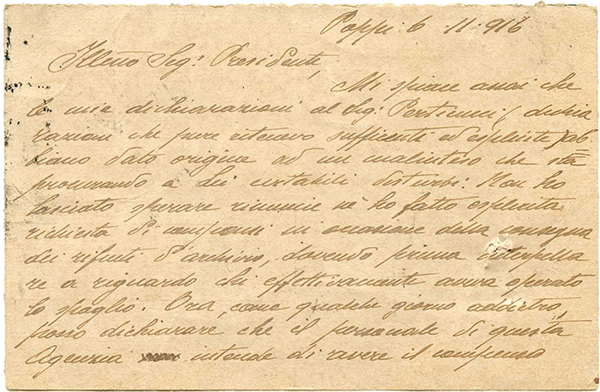 Poppi 6-11-916
Illmo Sig. Presidente,
Mi spiace assai che
le mie dichiarazioni al Sig. Perticucci (dichia
razioni che pure ritenevo sufficienti ed esplicite) ab
biano dato origine ad un malinteso che sta
procurando a Lei inevitabili disturbi. Non ho
lasciato sperare rinuncie nè ho fatto esplicita
richiesta di compensi in occasione della consegna
dei rifiuti d'archivio, dovendo prima interpella
re a riguardo chi effettivamente aveva operato
lo spoglio. Ora, come qualche giorno addietro,
posso dichiarare che il personale di questa
Agenzia intende di avere il compenso